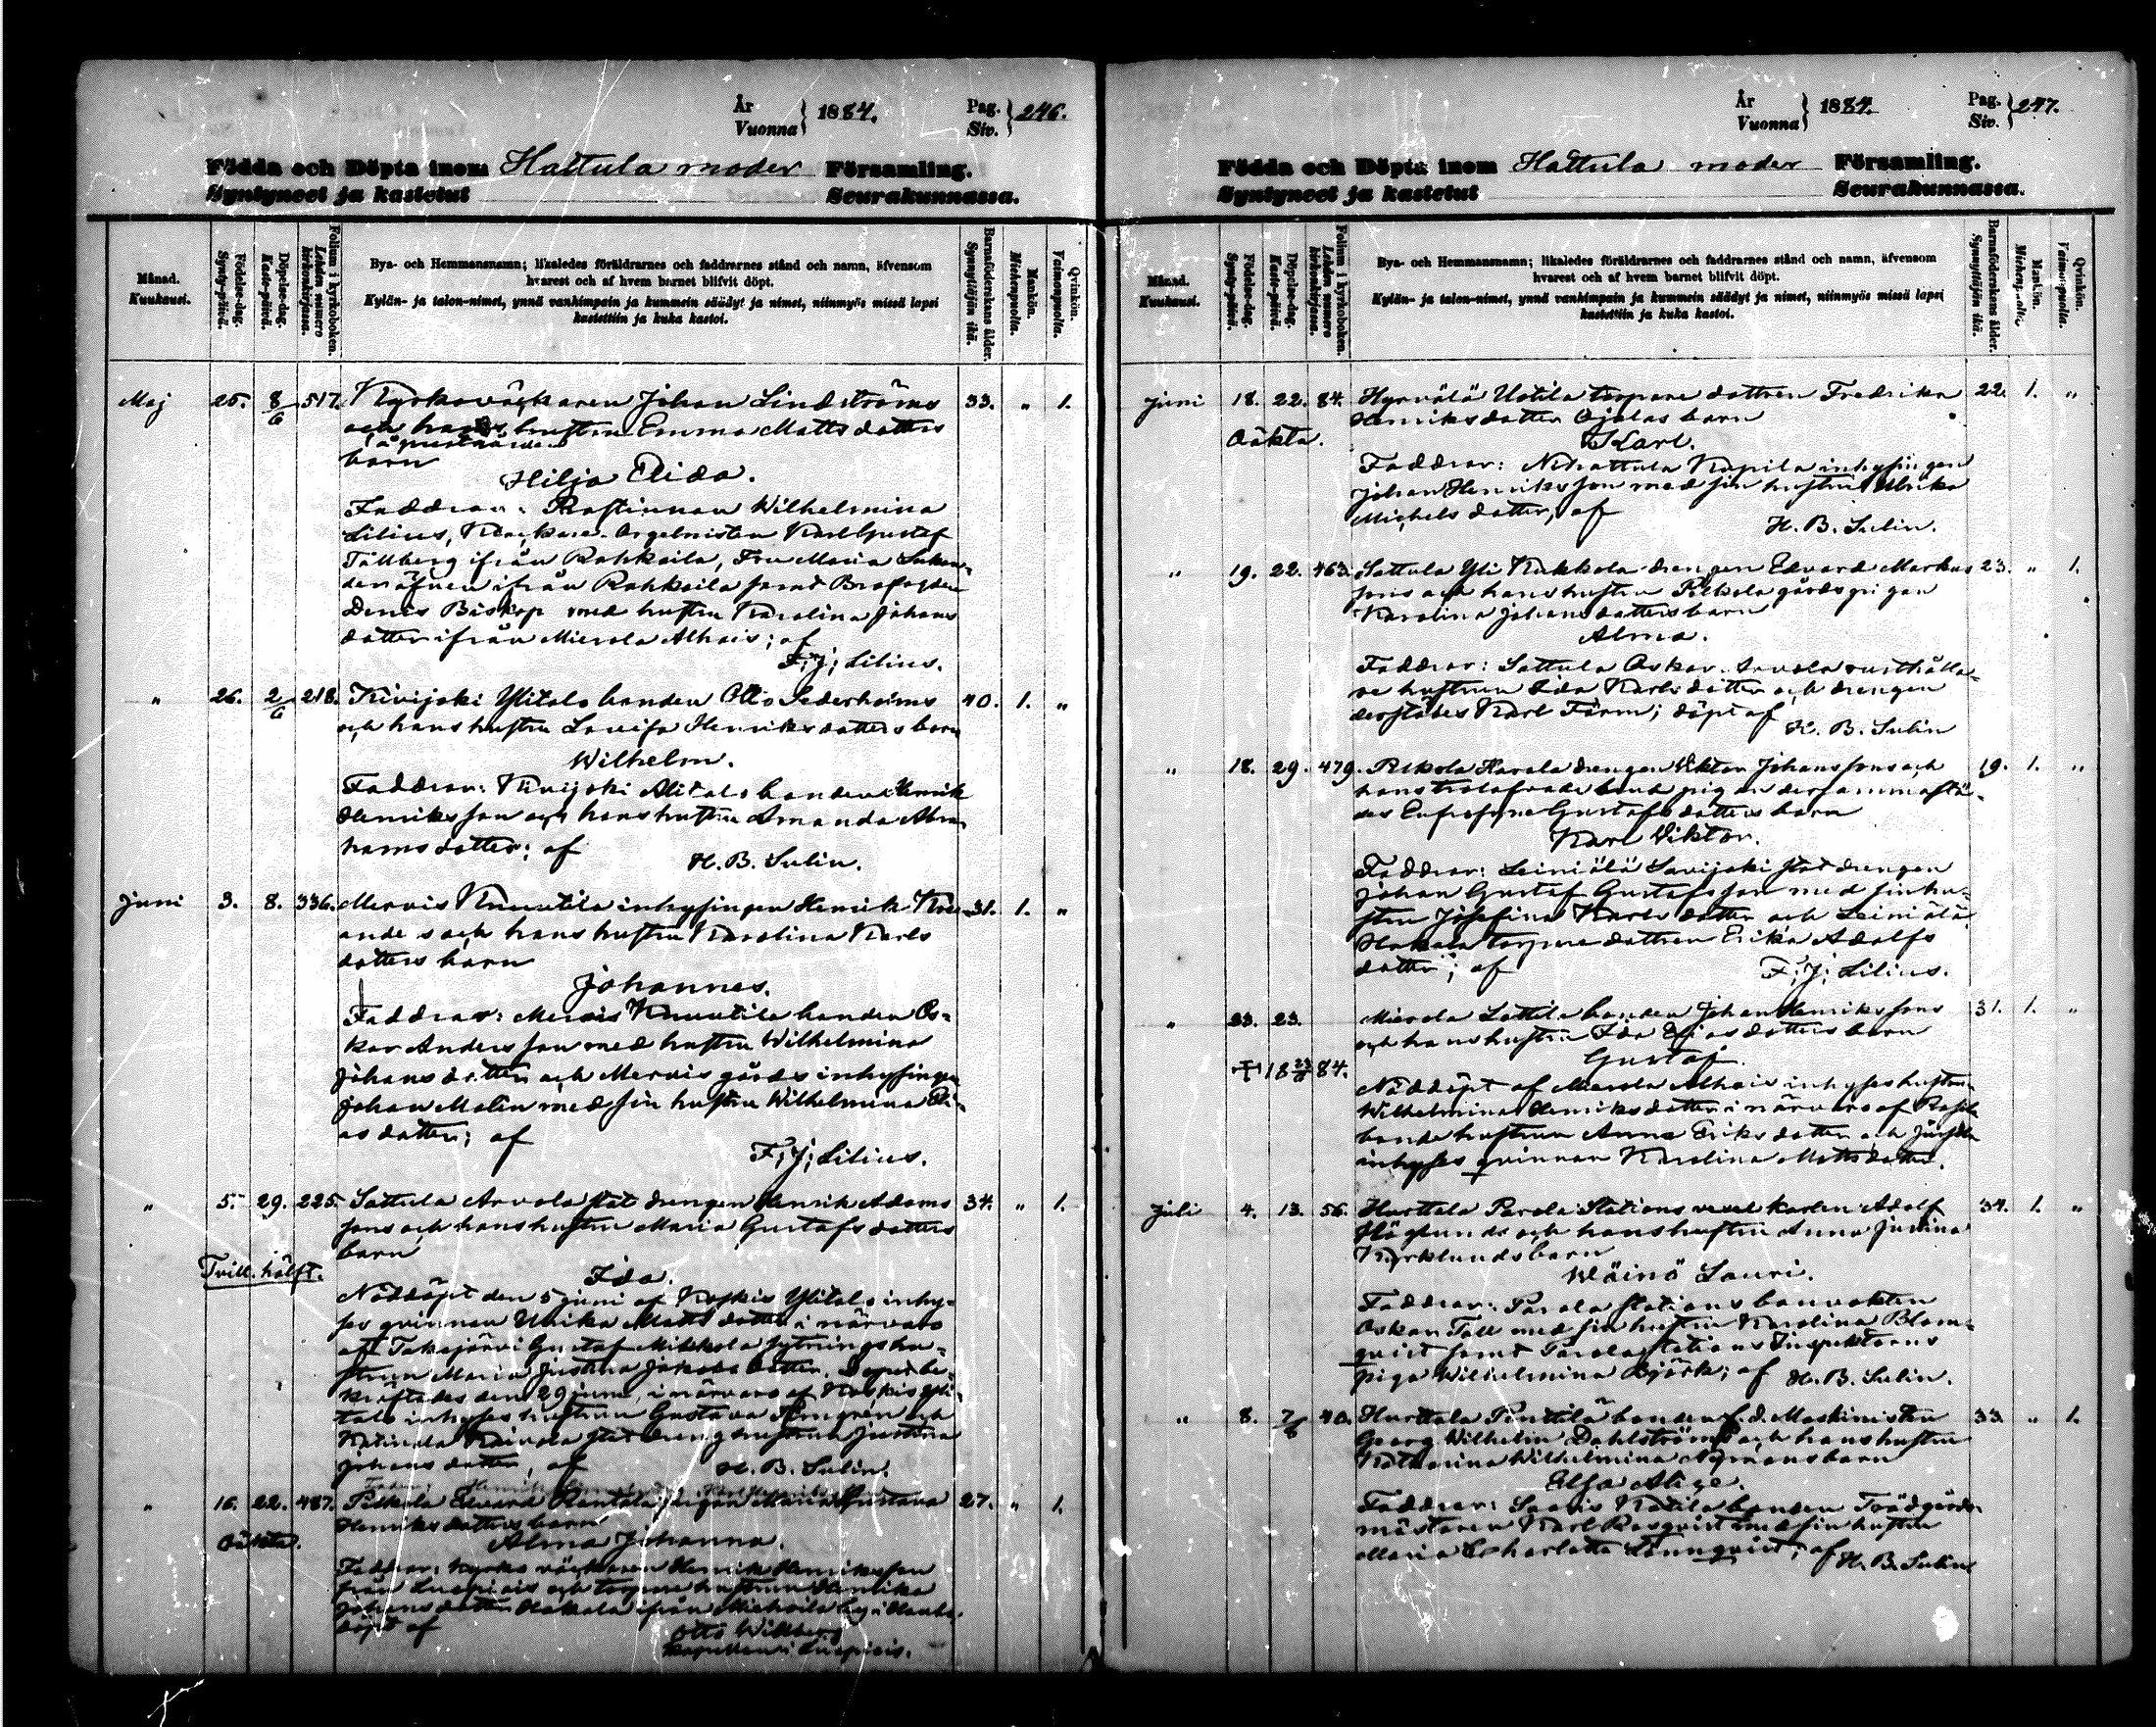 År
Vuonna } 1884.
Pag.
Siv. } 246.
Födda och Döpta inom Hattula moder Församling.
Syntyneet ja kastetut Seurakunnassa.
Månad.
Kuukausi.
Födelse-dag.
Synty-päivä.
Döpelse-dag.
Kaste-päivä.
Folium i kyrkoboken.
Lehden numero kirkonkirjassa.
Bya- och Hemmansnamn; likaledes föräldrarnes och faddrarnes stånd och namn, äfvensom
hvarest och af hvem barnet blifvit döpt.
Kylän- ja talon-nimet, ynnä vanhimpain ja kummein säädyt ja nimet, niinmyös missä lapsi
kastettiin ja kuka kastoi.
Barnaföderskans ålder.
Synnyttäjän ikä.
Mankön.
Miehenpuolta.
Qvinkön.
Vaimonpuolta.
Maj 25. 8/6 517. Kyrkoväktaren Johan Lindströms 33. " 1.
och hans hustru Emma Matts dotters
barn
Hilja Aida.
Faddrar: Prostinnan Wilhelmina
Lilius, Klockare-Orgelnisten Karl Gustaf
Tallberg ifrån Rahkoila, Fru Maria
ifrån Rahkoila samt
Denis Biskop med hustru Karolina Johans
dotter ifrån Mierola Alhais; af
F; J; Lilius.
" 26. 2/6 218. Kivijoki Ylitalo bonden Otto Sederholms 40. 1. "
och hans hustru Lovisa Henriks dotters barn
Wilhelm.
Faddrar: Kivijoki Alitalo bonden Henrik
Henriksson och hans hustru Amanda Abra-
hams dotter; af
H. B. Sulin.
Juni 3. 8. 336. Mervis Knuutila inhysingen Henrik 31. 1. "
och hans hustru Karolina Karls
dotters barn
Johannes.
Faddrar: Mervis Knuutila bonden Os-
kar Andersson med hustru Wilhelmina
Johans dotter och Mervis gårds inhysingen
Johan Malin med sin hustru Wilhelmina Eli-
as dotter; af
F; J; Lilius.
" 5. 29. 225. Sattula Arvola statdrengen Henrik Adams 34. " 1.
sons och hans hustru Maria Gustafs dotters
barn
Tvill. hälft.
Ida.
Nöddöpt den 5 juni af Koskis Ylitalo inhy-
ses qvinnan Ulrika Matts dotter i närvaro
af Takajärvi Gustaf Mikkola sytningshu-
strun Maria Justina Jakobs dotter. Dopet be-
kräftades den 29 juni, i närvaro af Koskis Yli-
talo inhyses hustrun Gustava Almgrén och
statdrengshustrun Justina
Johans dotter, af H. B. Sulin.
" 16. 22. 487. Pelkola Edvard Rantala pigan Maria Gustava 27. " 1.
Henriks dotters barn
Oäkta.
Alma Johanna.
Faddrar: Kyrkoväktaren Henrik Henriksson
från Luopiois och torpare hustrun Henrika
Johans dotter Hakala ifrån
döpt af
Otto Willberg
kapellan i Luopiois.
År
Vuonna } 1884.
Pag.
Siv. } 247.
Födda och Döpta inom Hattula moder Församling.
Syntyneet ja kastetut Seurakunnassa.
Månad.
Kuukausi.
Födelse-dag.
Synty-päivä.
Döpelse-dag.
Kaste-päivä.
Folium i kyrkoboken.
Lehden numero kirkonkirjassa.
Bya- och Hemmansnamn; likaledes föräldrarnes och faddrarnes stånd och namn, äfvensom
hvarest och af hvem barnet blifvit döpt.
Kylän- ja talon-nimet, ynnä vanhimpain ja kummein säädyt ja nimet, niinmyös missä lapsi
kastettiin ja kuka kastoi.
Barnaföderskans ålder.
Synnyttäjän ikä.
Mankön.
Miehenpuolta.
Qvinkön.
Vaimonpuolta.
Juni 18. 22. 84. Hyrvälä Uotila torpare dottren Fredrika 22. 1. "
Henriks dotter Ojalas barn
Oäkta.
Karl.
Faddrar: Nihattula Kapila inhysingen
Johan Henriksson med sin hustru Ulrika
Michels dotter, af
H. B. Sulin.
" 19. 22. 463. Sattula Yli Kukkola drengen Edvard Markus 23. " 1.
sons och hans hustru Pelkola gårdspigan
Karolina Johans dotters barn
Alma.
Faddrar: Sattula Oskar Arvola rusthålla-
re hustrun Ida Karls dotter och drengen
derstädes Karl Färm; döpt af
H. B. Sulin
" 18. 29. 479. Pelkola Harola drengen Viktor Johanssons och 19. 1. "
hans trolofvade pigan dersammastä-
des Eufrosyne Gustafs dotters barn
Karl Viktor.
Faddrar: Leiniälä Savijoki statdrengen
Johan Gustaf Gustafsson med sin hu-
stru Josefina Karls dotter och Leiniälä
Hakala torpare dottren Erika Adolfs
dotter; af F; J; Lilius.
" 23. 23. Mierola Lattila bonden Johan Henrikssons 31. 1. "
och hans hustru Ida Elias dotters barn
Gustaf.
18 23/6 84.
Nöddöpt af Mierola Alhais inhyses hustrun
Wilhelmina Henriks dotter i närvaro af
bonde hustrun Anna Eriks dotter och
inhyses qvinnan Karolina Matts dotter.
Juli 4. 13. 56. Hurttala Parola Stations vexelkarlen Adolf 34. 1. "
Höglunds och hans hustru Anna Justina
Kyrklunds barn
Wäinö Lauri.
Faddrar: Parola stations banvakten
Oskar Tall med sin hustru Karolina Blom-
qvist samt Parola stations Inspektorns
piga Wilhelmina Björk; af H. B. Sulin.
" 8. 7/8 40. Hurttala Penttilä bonden f.d. Maskinisten 33. " 1.
Georg Wilhelm Dahlströms och hans hustru
Katharina Wilhelmina Nymans barn
Elsa Alice.
Faddrar: Saaris Katila bonden Trädgårds-
mästaren Karl Rosqvist med sin hustru
Maria Charlotta Lönnqvist; af H. B. Sulin